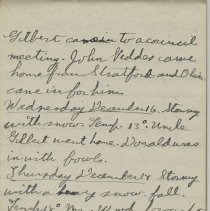 Gilbert came in to a council
meeting. John Geddes came
home from Stratford and Olin
came in for him.
Wednesday December 16. Stormy
with snow. Temp. 13°. Uncle
Gilbert went home. Donald was
in with fowls.
Thursday December 17 Stormy
with a heavy snow fall.
Temp 18°. Mrs. Wood